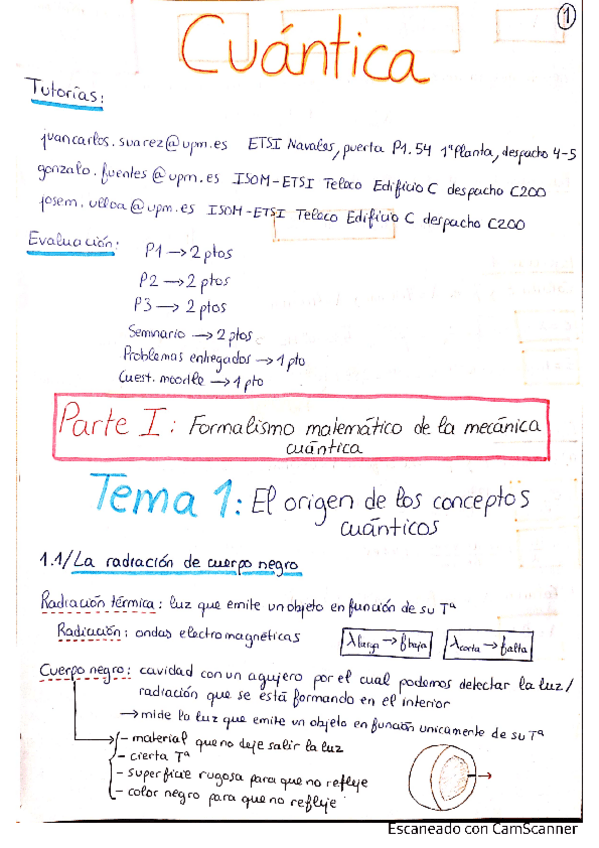 1
Cuántica
Tutorías:
juancarlos.suarez@upm.es ETSI Navales, puerta P1.54 1ª Planta, despacho 4-5
gonzalo.fuentes@upm.es ISOM-ETSI Teleco Edificio C despacho C200
josem.ulloa@upm.es ISOM-ETSI Teleco Edificio C despacho C200
Evaluación: P1 → 2 ptos
P2 → 2 ptos
P3 → 2 ptos
Seminario → 2 ptos
Problemas entregados → 1 pto
Cuest. moodle → 1 pto
Parte I: Formalismo matemático de la mecánica
cuántica
Tema 1: El origen de los conceptos
cuánticos
1.1/La radiación de cuerpo negro
Radiación térmica: luz que emite un objeto en función de su Tª
Radiación: ondas electromagnéticas λlarga → fbaja λcorta → falta
Cuerpo negro: cavidad con un agujero por el cual podemos detectar la luz/
radiación que se está formando en el interior
→ mide la luz que emite un objeto en función unicamente de su Tª
- material que no deje salir la luz
- cierta Tª
- superficie rugosa para que no refleje
- color negro para que no refleje
Escaneado con CamScanner